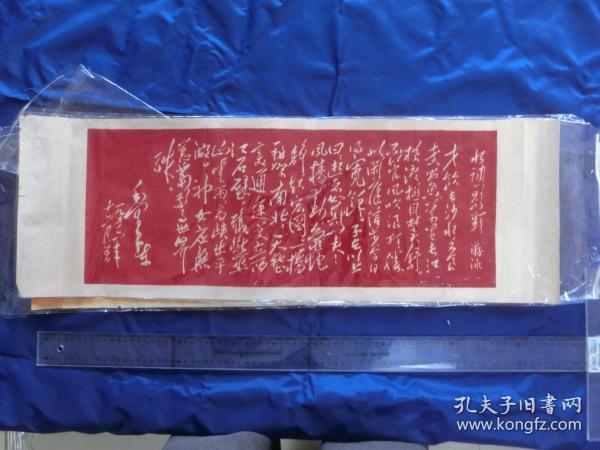 水调歌头 游泳
才饮长沙水又食
武昌鱼万里长江
横渡极目楚天舒
不管风吹浪打胜
似闲庭信步今日
得宽馀 子在川上
曰逝者如斯夫
风樯动龟蛇
静起宏图一桥
飞架南北天堑
变通途更立西
江石壁 截断巫
山云雨高峡出平
湖神女应无
恙当惊世界
殊
毛泽东
孔夫子旧书网
www.kongfz.com